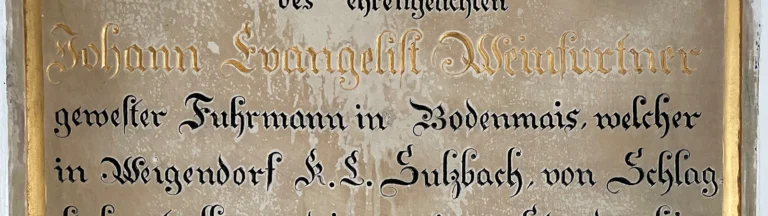 des ehrengeachten
Johann Evangelist Weinfurtner
gewester Fuhrmann in Bodenmais, welcher
in Weigendorf K. L. Sulzbach, von Schlag